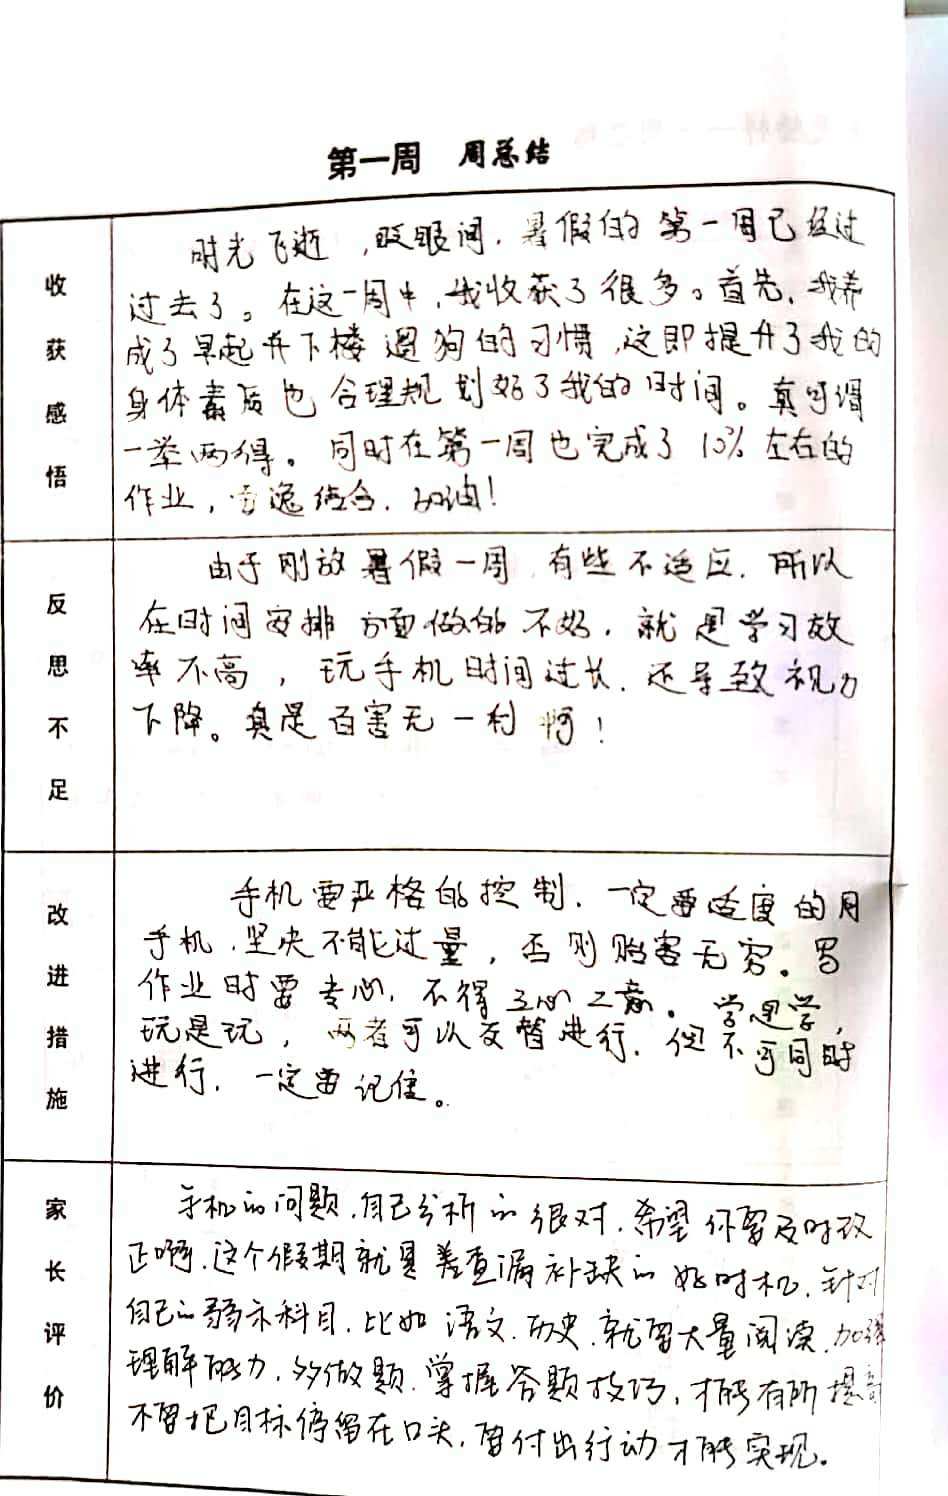 第一周 周总结
收获感悟
时光飞逝，眨眼间，暑假的第一周已经过
过去了。在这一周中，我收获了很多。首先，我养
成了早起并下楼遛狗的习惯，这即提升了我的
身体素质也合理规划好了我的时间。真可谓
一举两得。同时在第一周也完成了10%左右的
作业，劳逸结合，加油！
反思不足
由于刚放暑假一周，有些不适应，所以
在时间安排方面做的不好，就是学习效
率不高，玩手机时间过长，还导致视力
下降。真是百害无一利啊！
改进措施
手机要严格的控制，一定要适度的用
手机，坚决不能过量，否则贻害无穷。写
作业时要专心，不得三心二意。学是学，
玩是玩，两者可以交替进行，但不可同时
进行，一定要记住。
家长评价
手机的问题，自己分析的很对，希望你要及时改
正啊，这个假期就是差查漏补缺的好时机，针对
自己的弱示科目，比如语文、历史，就要大量阅读，加强
理解能力，多做题，掌握答题技巧，才能有所提高
不要把目标停留在口头，要付出行动才能实现。